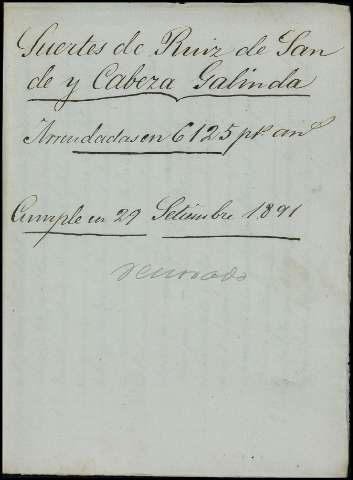 Suertes de Ruiz de San
de y Cabeza Galinda
Arrendadas en 6125 pts an.l
Cumple en 29 Setiembre 1891
renovado